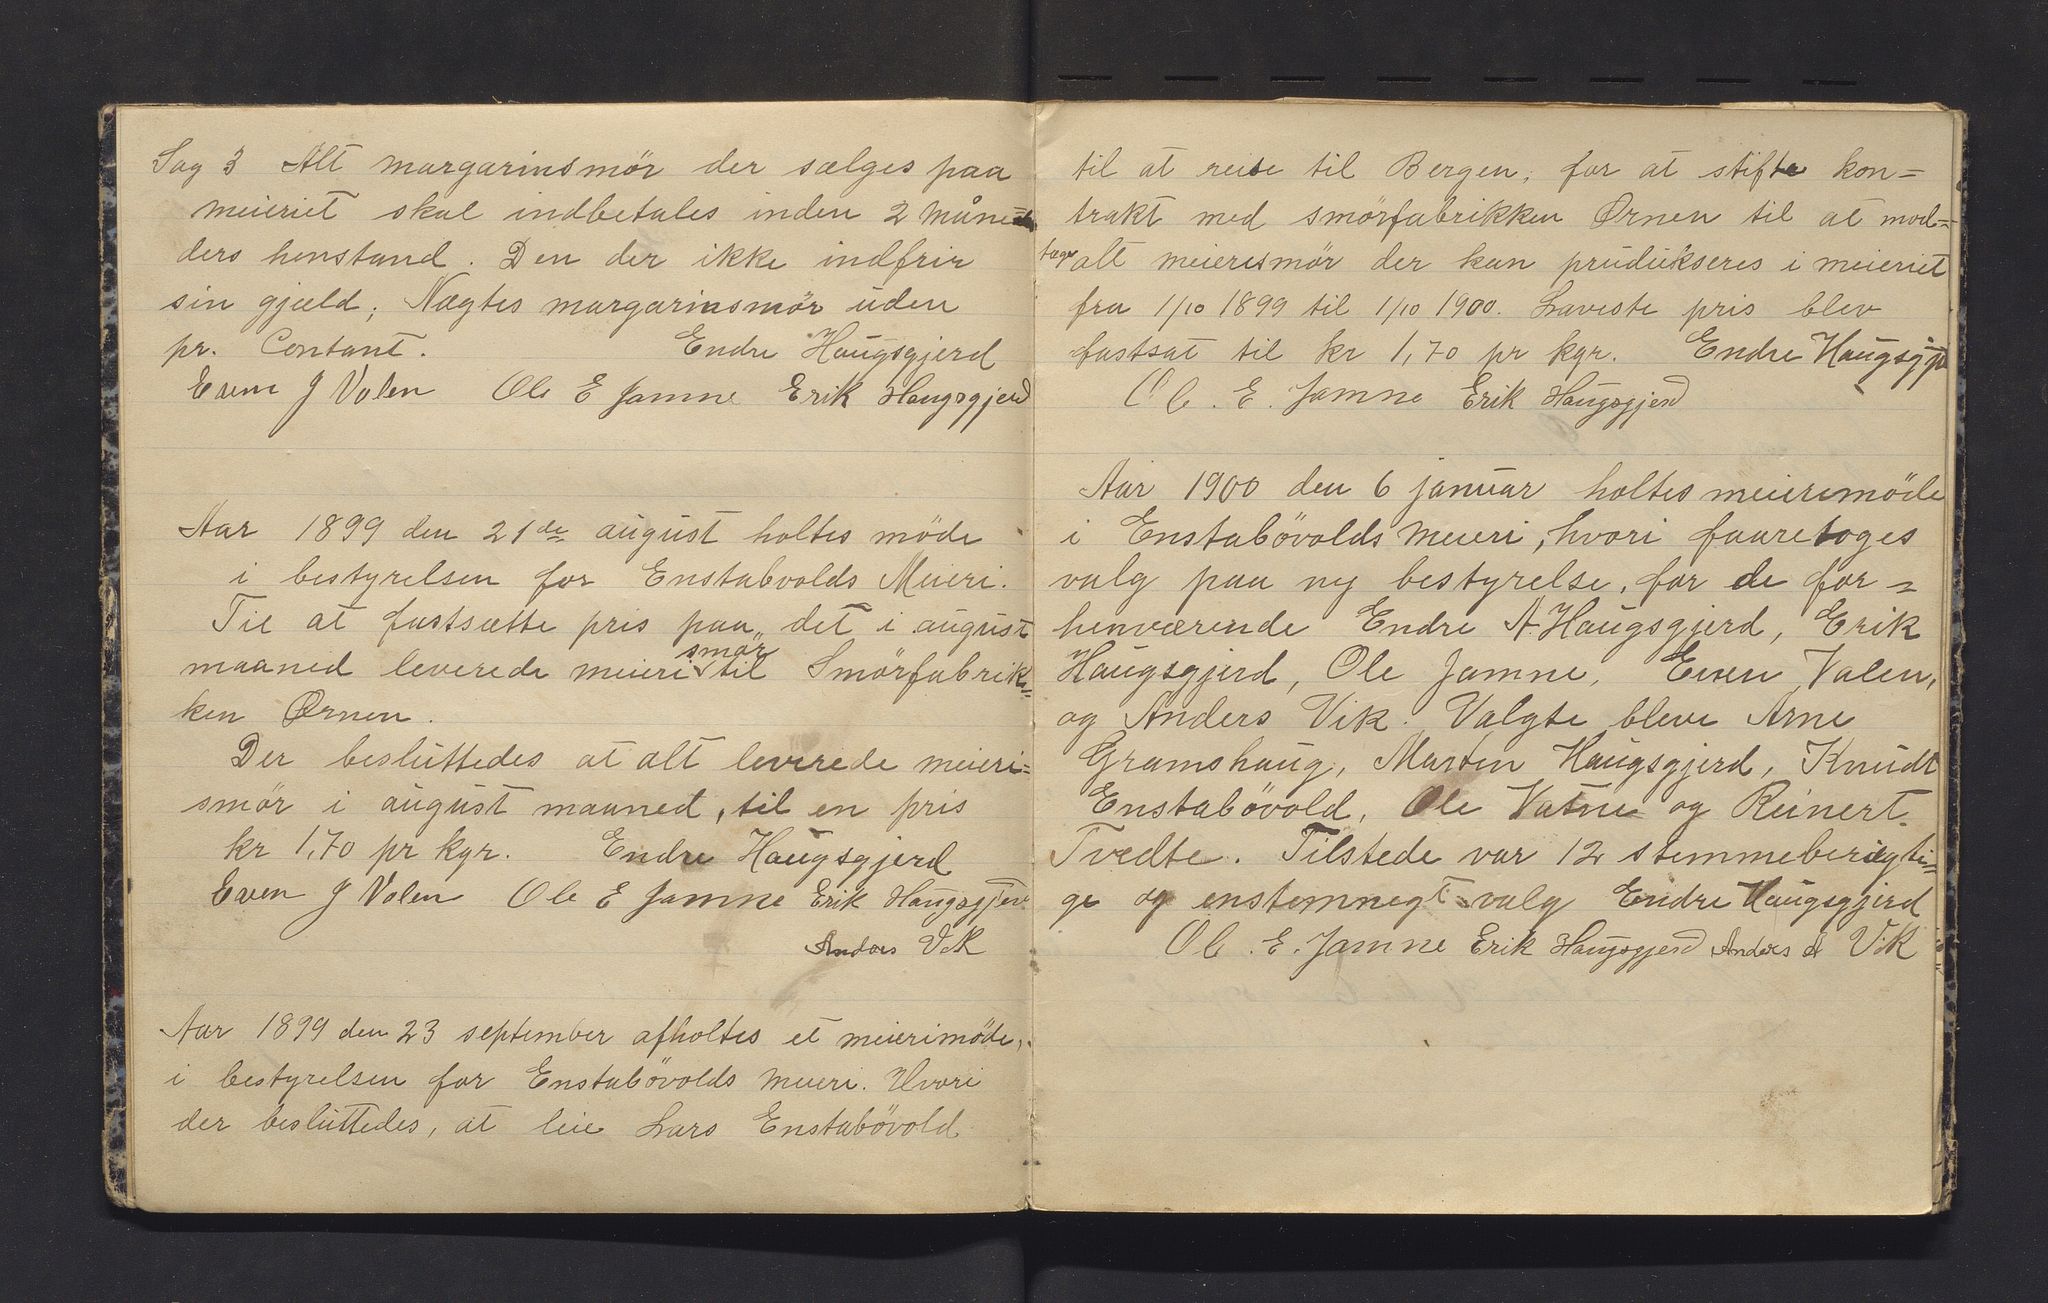 Sag 3 Alt margarinsmör der sælges paa
meieriet skal indbetales inden 2 måne-
ders henstand. Den der ikke indfrir
sin gjæld; Nægtes margarinsmör uden
pr. Contant. Endre Haugsgjerd
Even J Valen Ole E Jamne Erik Haugsgjerd
Aar 1899 den 21de august holtes möde
i bestyrelsen for Enstabvolds Meieri.
Til at fastsætte pris paa det i august
maaned leverede meieri smör til Smörfabrik=
ken Ørnen.
Der besluttedes at alt leverede meieri=
smör i august maaned, til en pris
kr 1,70 pr kgr. Endre Haugsgjerd
Even J Valen Ole E Jamne Erik Haugsgjerd
Anders Vik
Aar 1899 den 23 september afholtes et meierimöde,
i bestyrelsen for Enstabövolds meieri. Hvori
der besluttedes, at leie Lars Enstabövold
til at reise til Bergen, for at stifte kon=
trakt med smörfabrikken Ørnen til at mod=
tage alt meierismör der kan prudukseres i meieriet
fra 1/10 1899 til 1/10 1900. Laveste pris blev
fastsat til kr 1,70 pr kgr. Endre Haugsgjr
Ole. E. Jamne Erik Haugsgjerd
Aar 1900 den 6 januar holtes meierimöde
i Enstabövolds meieri, hvori faaretoges
valg paa ny bestyrelse, for de for=
henværende Endre A. Haugsgjerd, Erik
Haugsgjerd, Ole Jamne, Even Valen,
og Anders Vik. Valgte bleve Arne
Gramshaug, Marten Haugsgjerd, Knudt
Enstabövold, Ole Vatne og Reinert
Tvedte. Tilstede var 12 stemmeberigti=
ge og enstemnegt valg Endre Haugsgjerd
Ole. E. Jamne Erik Haugsgjerd Anders A Vik